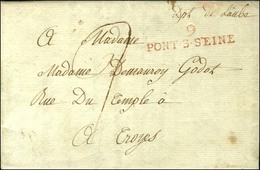 Dpt de Laube
9
PONT-S-SEINE
A Madame
Madame Demauroy Godot
Rue Du Temple à
A Troyes